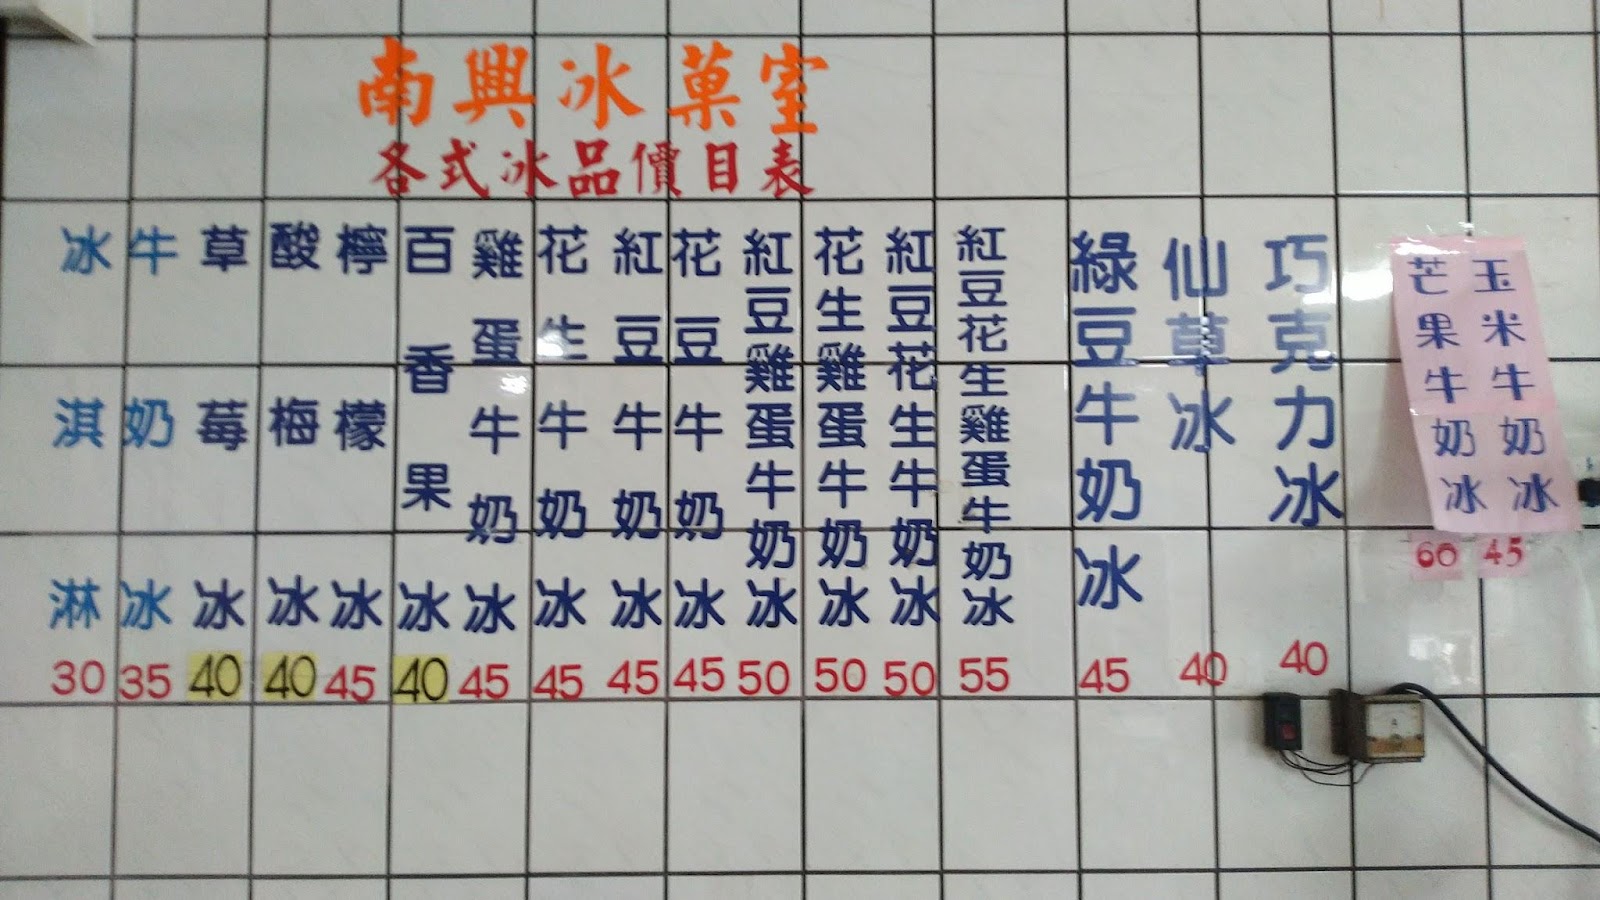 南興冰菓室
各式冰品價目表
冰淇淋 30
牛奶冰 35
草莓冰 40
酸梅冰 40
檸檬冰 45
百香果冰 40
雞蛋牛奶冰 45
花生牛奶冰 45
紅豆牛奶冰 45
花豆牛奶冰 45
紅豆雞蛋牛奶冰 50
花生雞蛋牛奶冰 50
紅豆花生牛奶冰 50
紅豆花生雞蛋牛奶冰 55
綠豆牛奶冰 45
仙草冰 40
巧克力冰 40
芒果牛奶冰 60
玉米牛奶冰 45